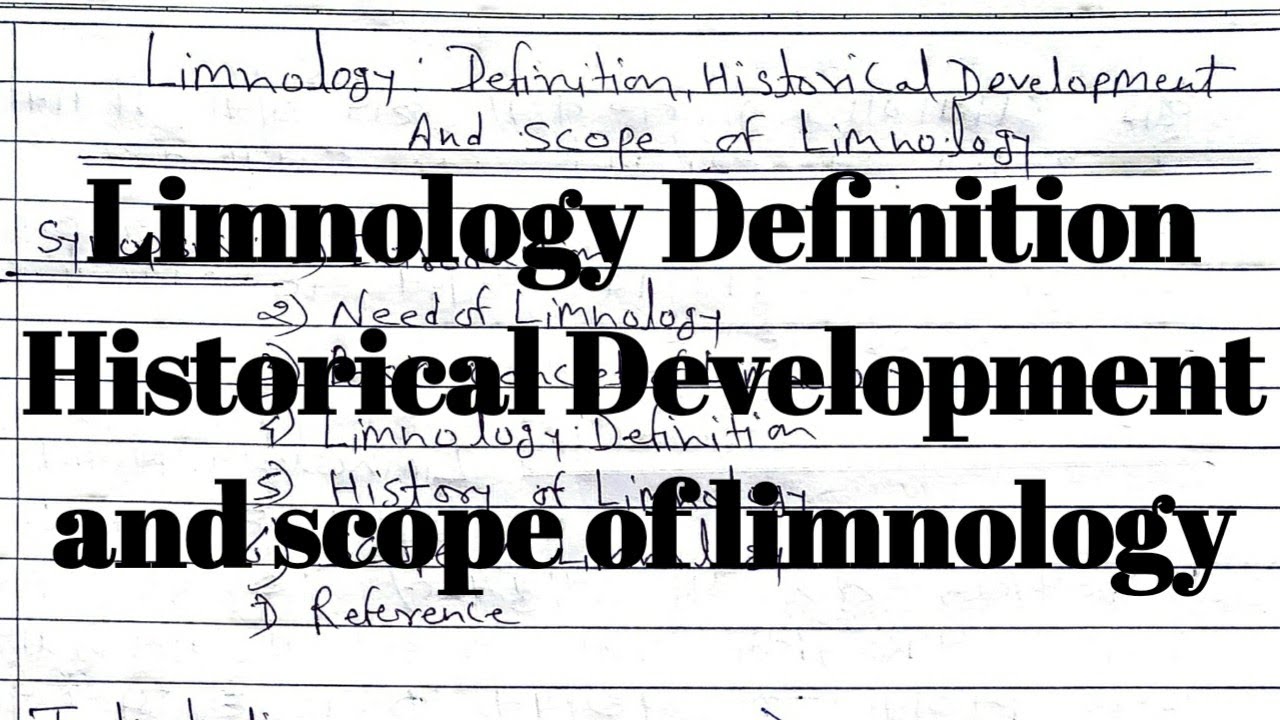 Limnology: Definition, Historical Development
And scope of Limnology
Limnology Definition
2) Need of Limnology
Historical Development
4) Limnology: Definition
5) History of Limnology
and scope of limnology
7) Reference